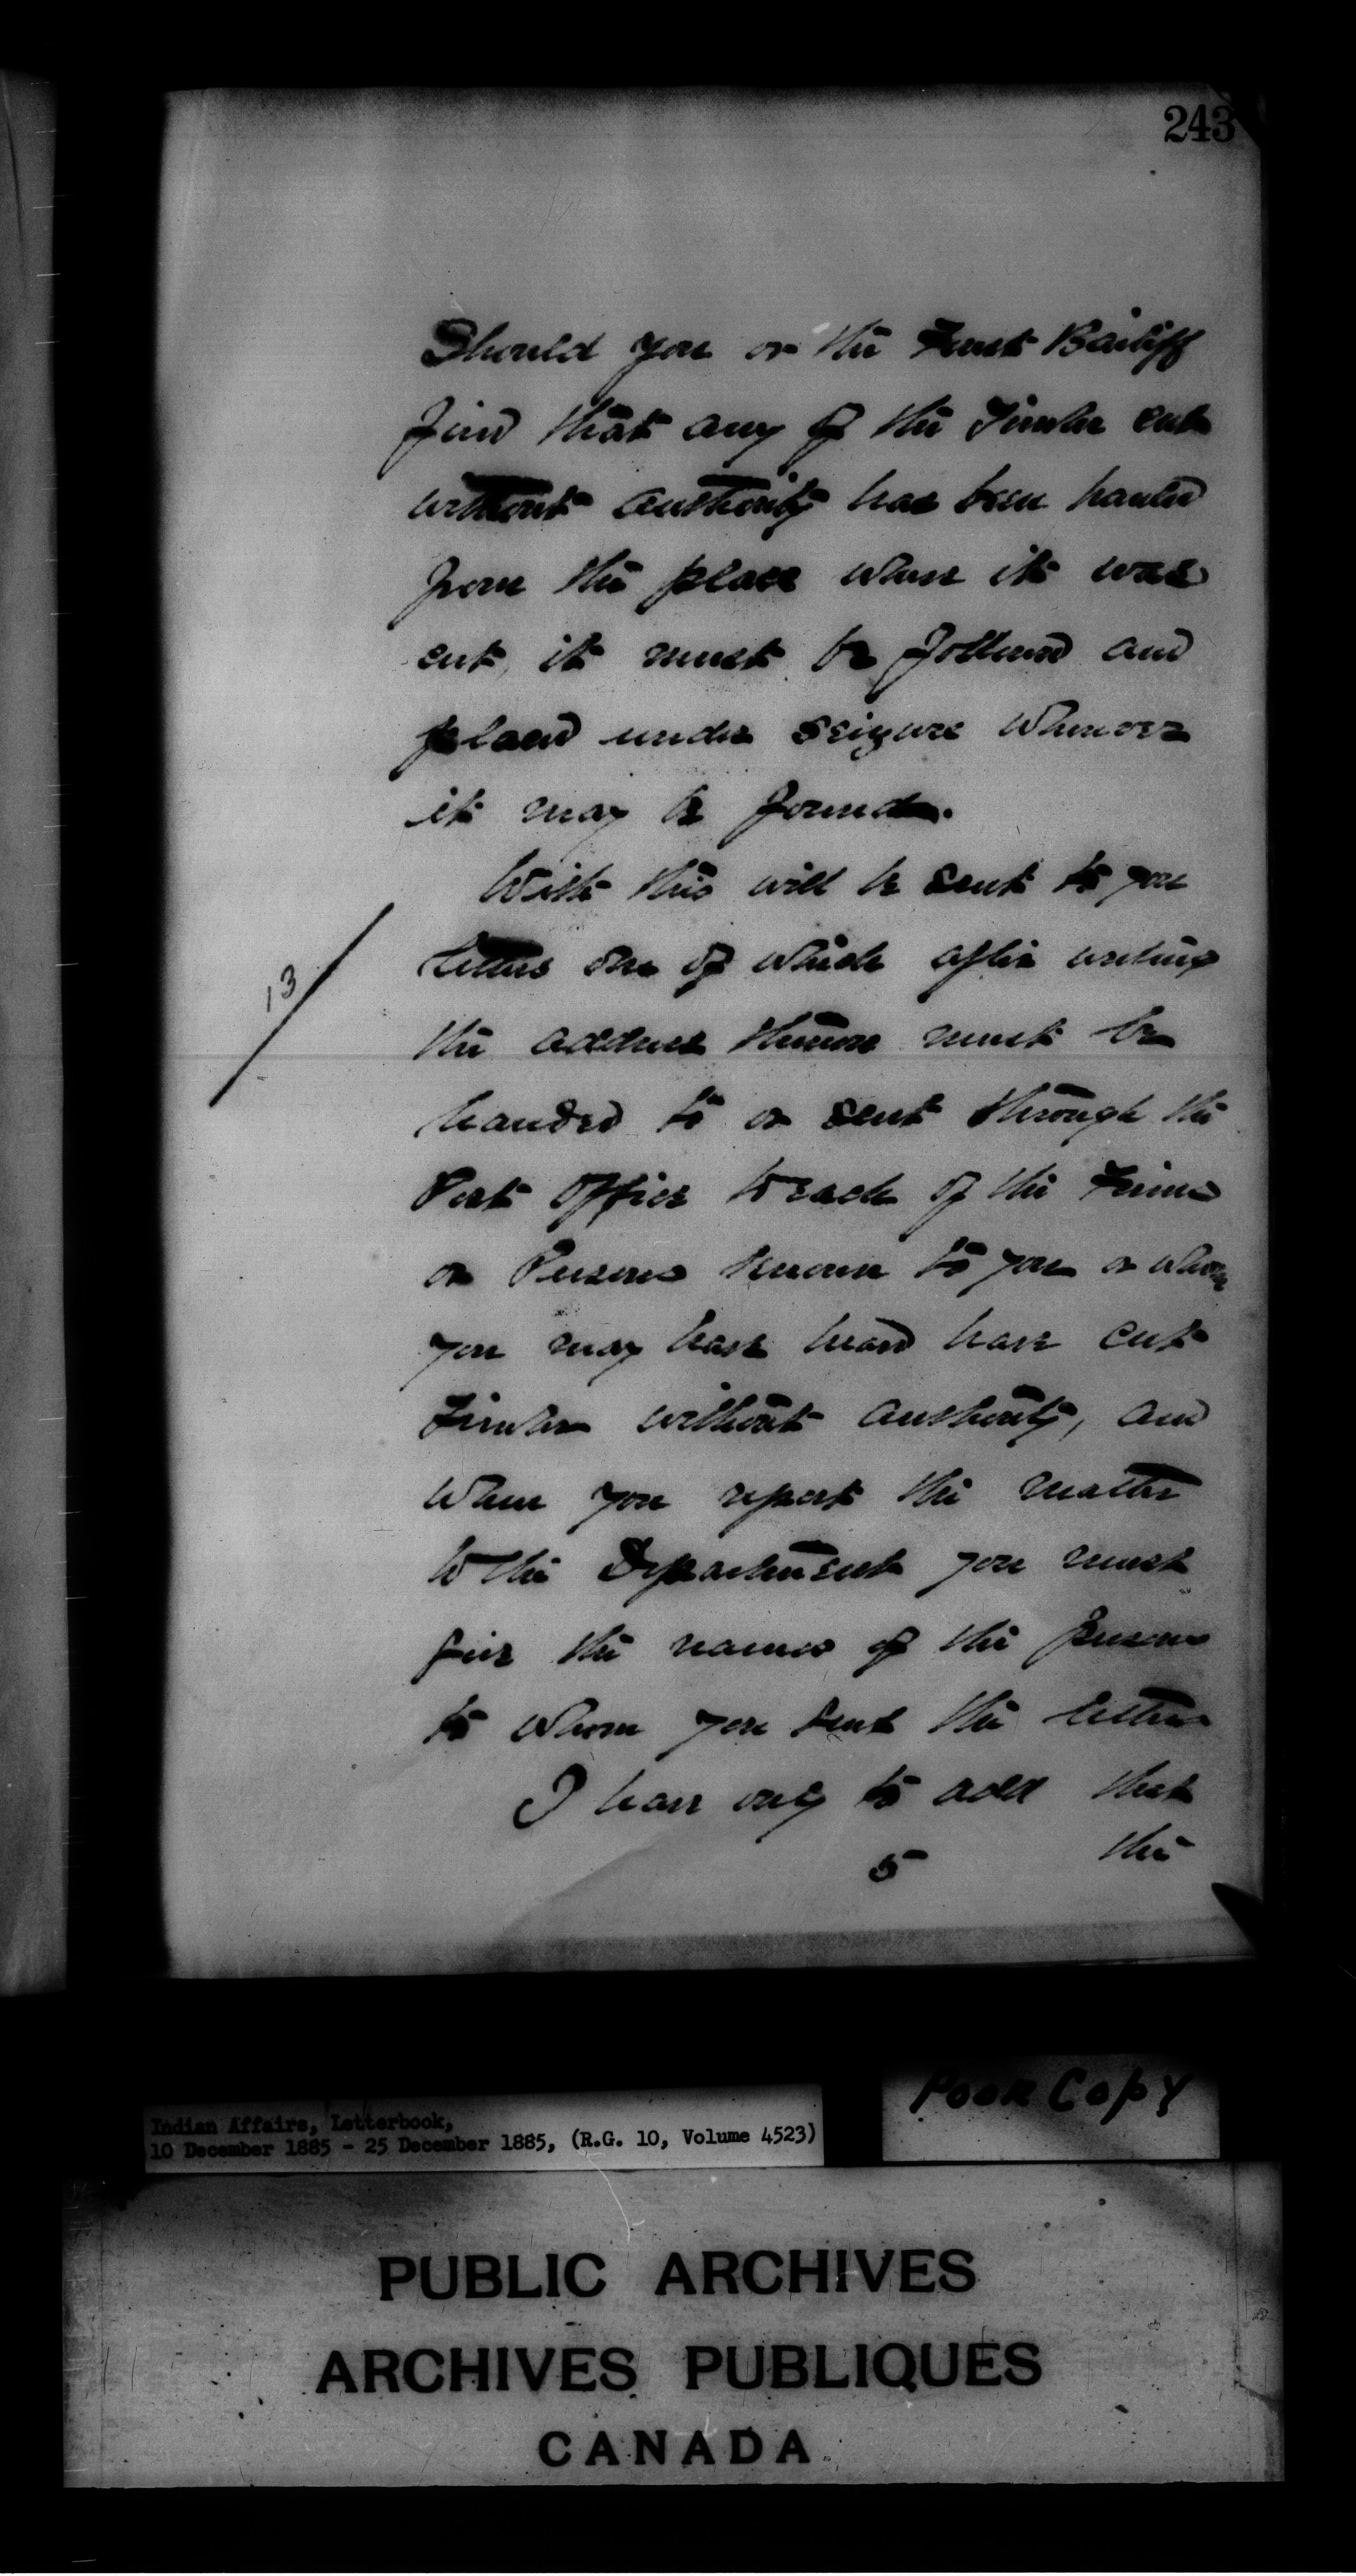 243
Should you or the Forest Bailiff
find that any of the Timber cut
without authority has been hauled
from the place where it was
cut, it must be followed and
placed under seizure wherever
it may be found.
With this will be sent to you
letters one of which after writing
13
the address thereon must be
handed to or sent through the
Post Office to each of the Firms
or Persons known to you or whom
you may have heard have cut
Timber without authority, and
when you report the matter
to the Department you must
give the names of the persons
to whom you sent the letters
I have only to add that
5 the
Poor Copy
Indian Affairs, Letterbook,
10 December 1885 - 25 December 1885, (R.G. 10, Volume 4523)
PUBLIC ARCHIVES
ARCHIVES PUBLIQUES
CANADA